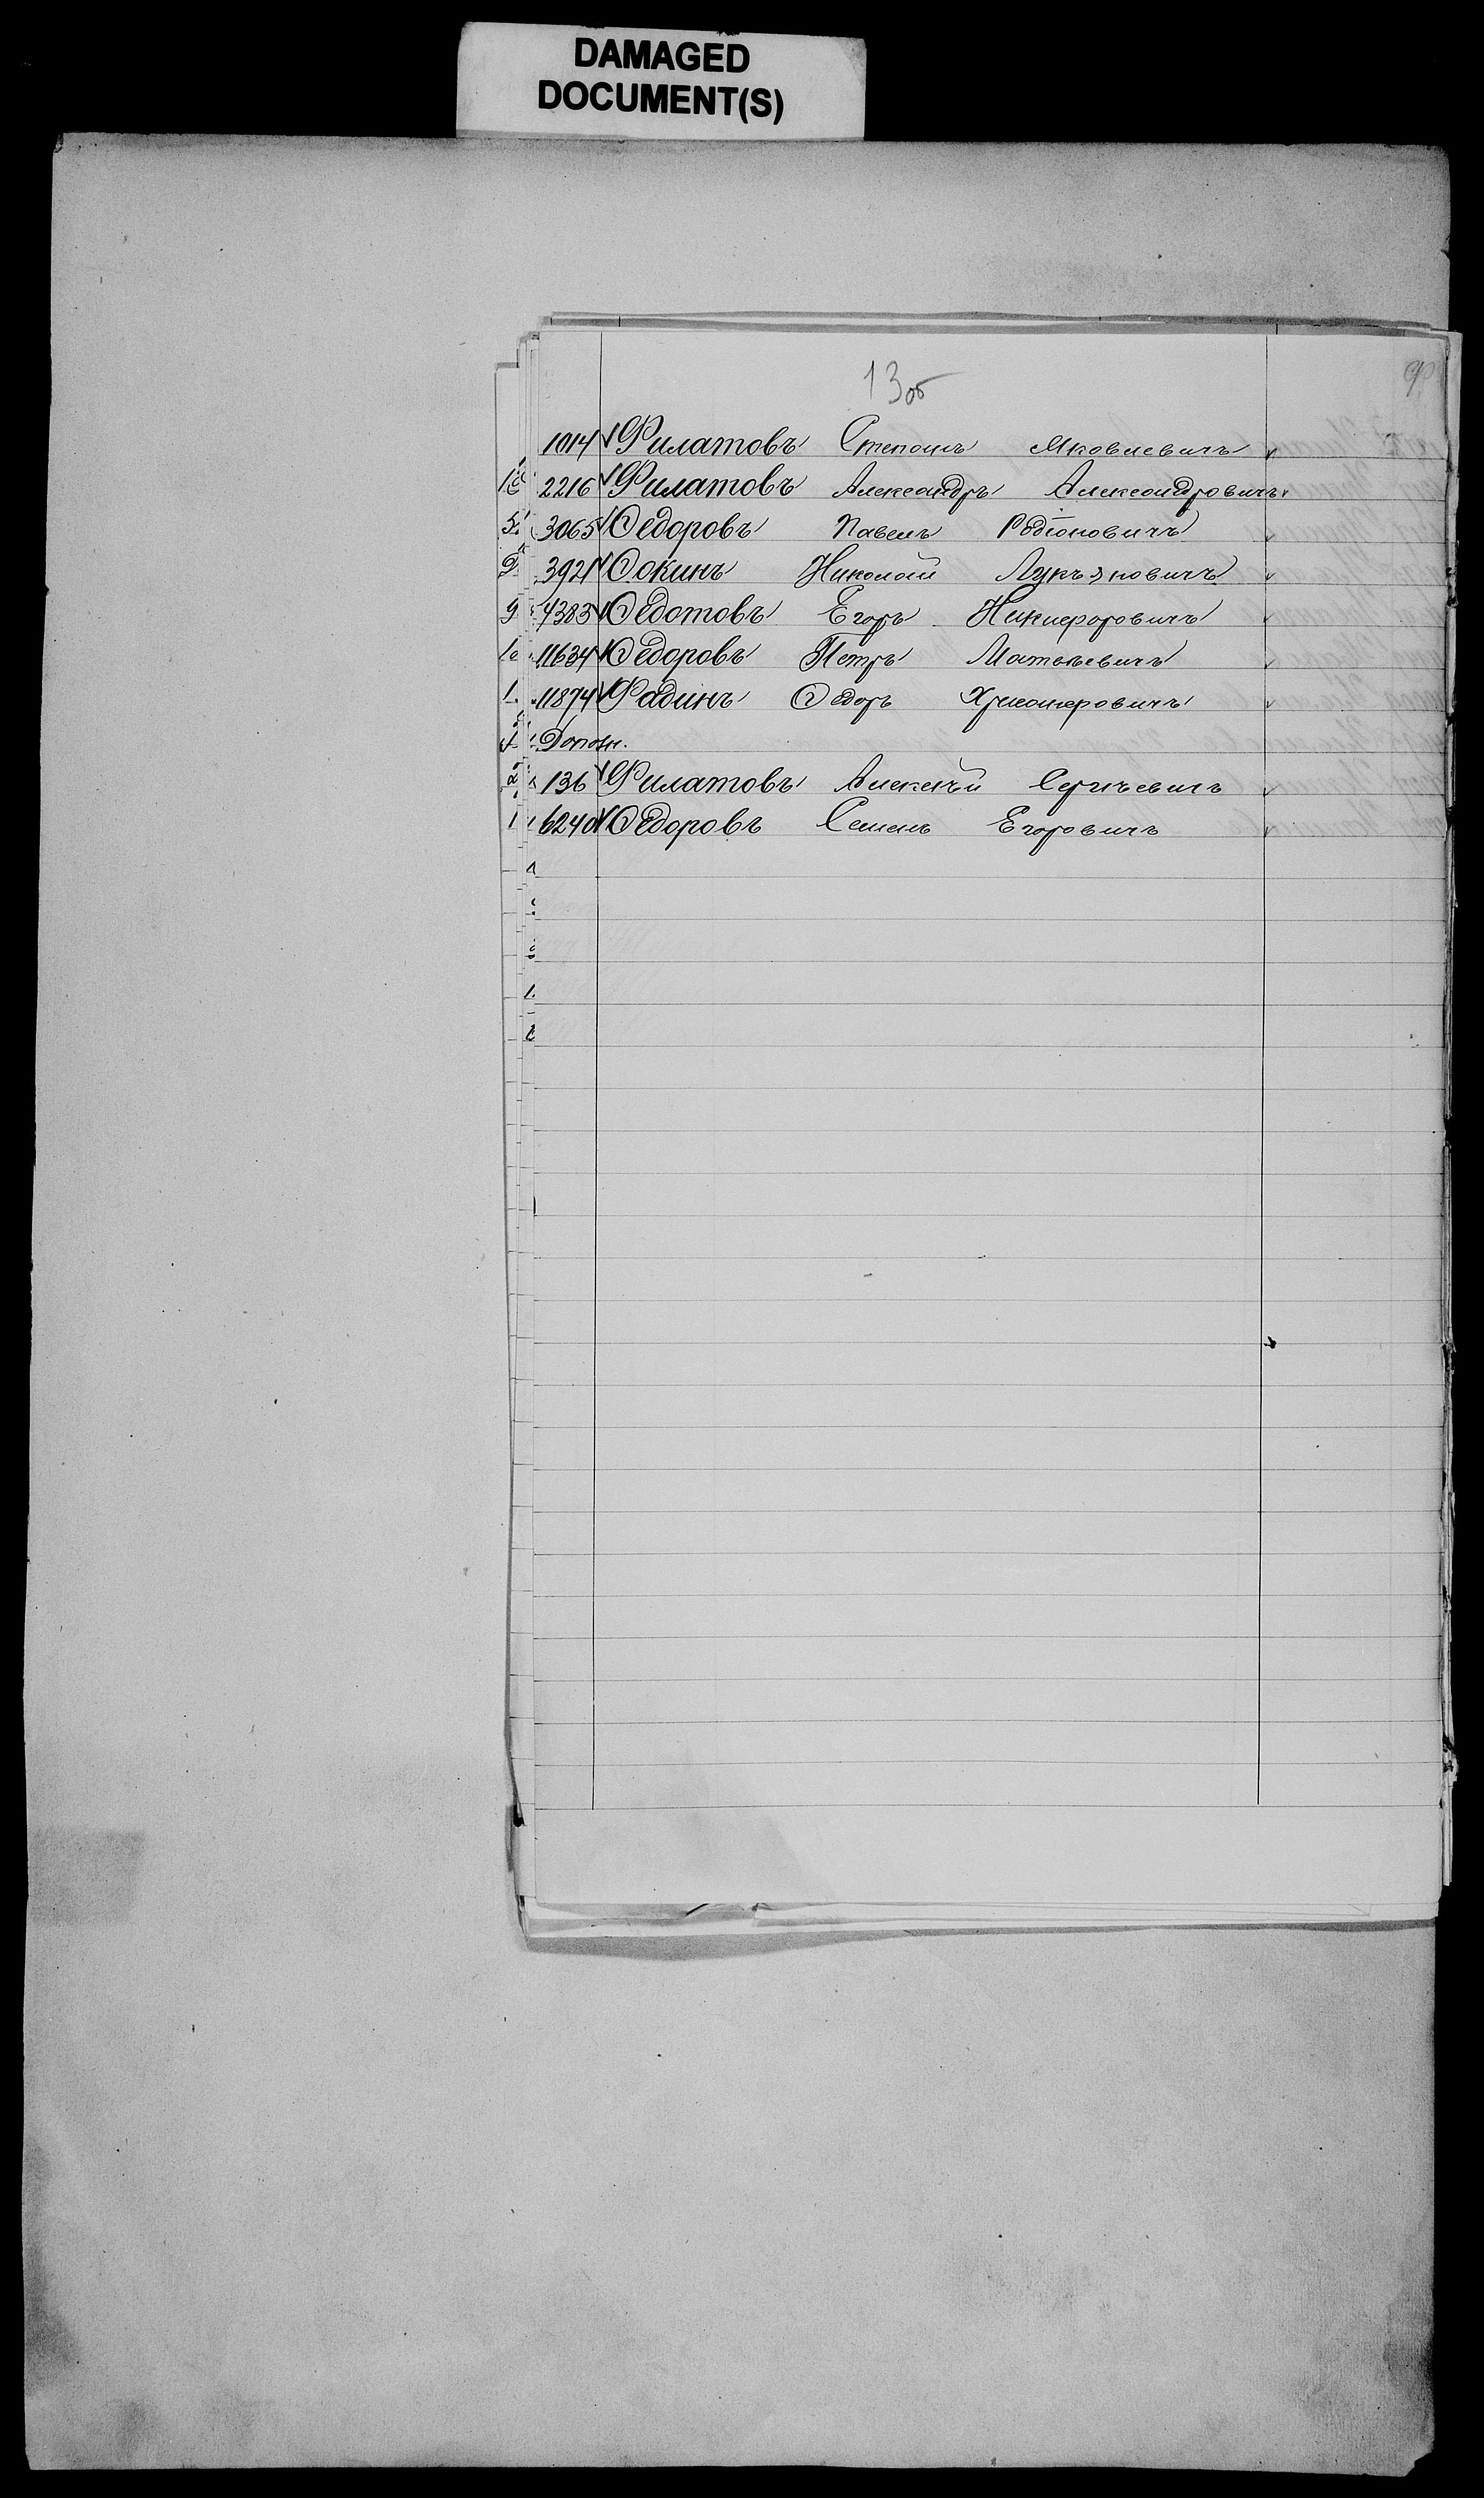 DAMAGED
DOCUMENT(S)
13об
Ф
1014 Филатовъ Степанъ Яковлевичъ
2216 Филатовъ Александръ Александровичъ
3065 Ѳедоровъ Павелъ Родіоновичъ
3921 Ѳокинъ Николай Лукъяновичъ
4383 Ѳедотовъ Егоръ Никифоровичъ
11634 Ѳедоровъ Петръ Матвѣевичъ
11874 Фадинъ Ѳедоръ
Дополн.
136 Филатовъ Алексѣй Сергѣевичъ
6240 Ѳедоровъ Семенъ Егоровичъ